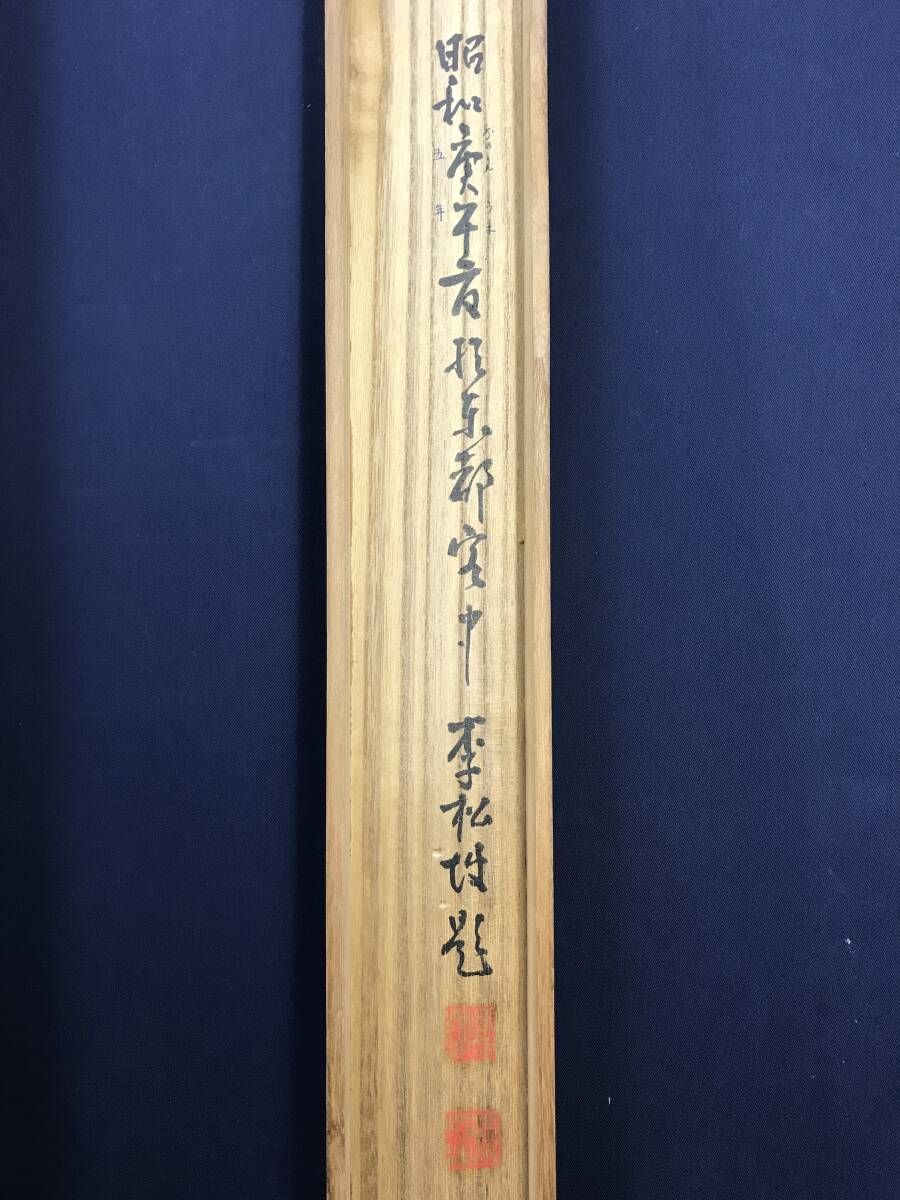 昭和庚午夏於東都客中 李松坡題
かのえ うま
五年